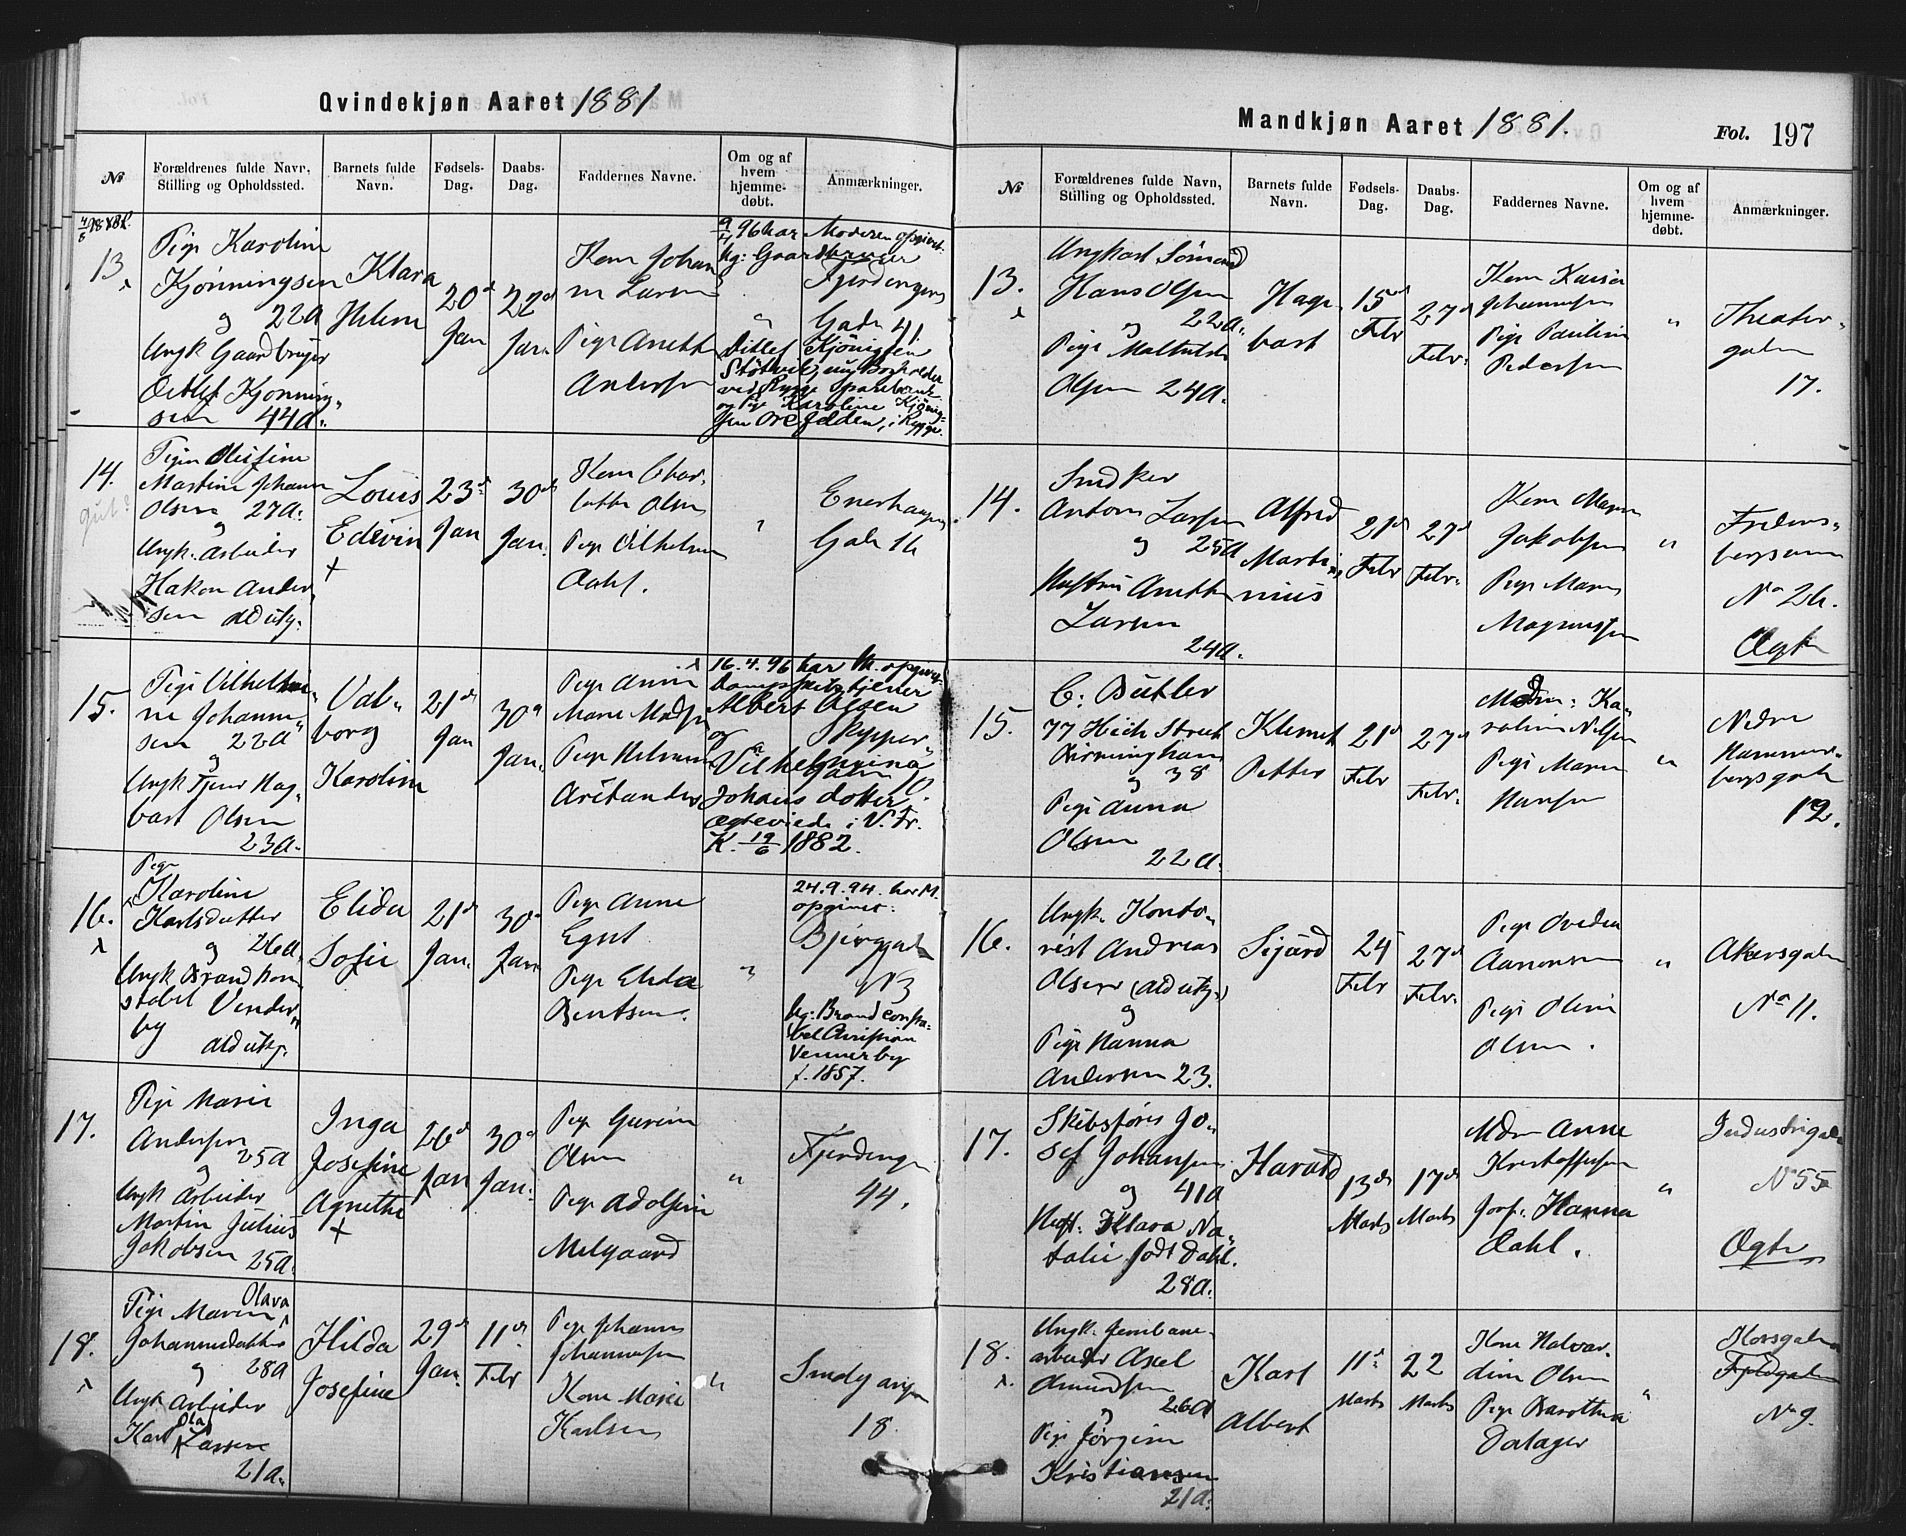 Qvindekjøn Aaret 1881
№
Forældrenes fulde Navn,
Stilling og Opholdssted.
Barnets fulde
Navn.
Fødsels-
Dag.
Daabs-
Dag.
Faddernes Navne.
Om og af
hvem
hjemme-
døbt.
Anmærkninger.
13
Pige Karoline
Kjønningsen
og 22a
Ungk Gaardbruger
Detlef Kjønning-
sen 44a.
Klara
Helene
20d
Jan
22d
Jan
Kone Johan
ne Larsen
Pige Anette
Andersen
9/4 96 har Moderen opgivet
Fjerdingens
Gade 41
Ditlef Kjönigsen
ved Rygge Sparebank
og Pige Karoline Kjönig-
sen Orefelden, i Rygge.
14.
Pigen Olefine
Martine Johanne
Olsen 27a.
og
Ungk. Arbeider
Hakon Ander-
sen ald utg.
Louis
Edevin
+
23d
Jan
30d
Jan.
Kone Char-
lotte Olsen
Pige Vilhelmine
Dahl.
"
Enerhaugen
Gade 16
15.
Pige Vilhelmi-
ne Johanne-
sen 22a
og
Ungk Tjener Hag-
bart Olsen
23a.
Val-
borg
Karoline
21d
Jan
30d
Jan.
Pige Anna
Marie Madsen
Pige
16.4.96 har M. opgivet
Dampskibstjener
Albert Olsen
og
Skipper-
gaden 10.
Vilhelmina
Johansdotter
Ægteviede i V. Fr.
K. 19/6 1882.
16.
Pige
Karoline
Karlsdatter
og 26a.
Ungk Brandkon-
stabel Vender-
by ald utg.
Elida
Sofie
21d
Jan.
30d
Jan.
Pige Anne
Egnt
Pige Elida
Bentsen.
"
24.9.94. har M.
opgivet:
Bjerggade
N 3
Brandconsta-
bel Christian
Vennerby
f. 1857.
17.
Pige Marie
Andersen
og 25a
Ungk Arbeider
Martin Julius
Jakobsen 25a.
Inga
Josefine
Agnethe
+
26d
Jan
30d
Jan.
Pige Gurine
Olsen
Pige Adolfine
Melgaard
"
Fjerdingen
44.
18.
Pige Maren Olava
Johannesdatter
og 28a
Ungk Arbeider
Karl Ola
Larsen
21a.
Hilda
Josefine
29d
Jan.
11d
Febr
Pige Johanne
Johannesen
Kone Marie
Karlsen
"
18
Mandkjøn Aaret 1881.
Fol. 197
№
Forældrenes fulde Navn,
Stilling og Opholdssted.
Barnets fulde
Navn.
Fødsels-
Dag.
Daabs-
Dag.
Faddernes Navne.
Om og af
hvem
hjemme-
døbt.
Anmærkninger.
13.
Ungkarl Sömand
Hans Olsen
og 22a.
Pige Mathilde
Olsen 24a.
Hag-
bart
15d
Febr
27d
Febr.
Kone Kaisa
Johannesen
Pige Pauline
Pedersen
"
Theater-
gaden
17.
14.
Snedker
Anton Larsen
og 25a
Hustru Anette
Larsen
24a.
Alfred
Marti-
nius
21d
Febr
27d
Febr.
Kone Maren
Jakobsen
Pige Maren
Magnussen
"
Fredens-
No 26.
Ægte
15.
C. Butler
77 High Street
Birmingham
og 38
Pige Anna
Olsen
22a.
Klemet
Petter
21d
Febr
27d
Febr.
Mdm: Ka-
roline Nilsen
Pige Maren
Hansen
"
Nedre
Hammers-
bergsgade
12.
16.
Ungk. Konto-
rist Andreas
Olsen (ald utg.)
og
Pige Hanna
Andersen 23.
Sigurd
24
Febr
27d
Febr.
Pige Ovedia
Aanonsen
Pige Oline
Olsen.
"
Akersgaden
No 11.
17.
Skibsfører Jo-
sef Johansen
og 41a
Hust. Klara Na-
talie født Dahl.
28a.
Harald
13d
Marts
17d
Marts
Mdm Anne
Kristoffersen
Jorf. Hanna
Dahl.
"
Industrigaden
No 55
Ægte
18.
Ungk. Jernbane-
arbeider Axel
Amundsen
og 26a
Pige Jørgine
Kristiansen
21a.
Karl
Albert
11d
Marts
22
Marts
Kone Halvar-
dine Olsen
Pige Barothea
Dalager
"
Korsgaden
Fjeldgaden
No 9.